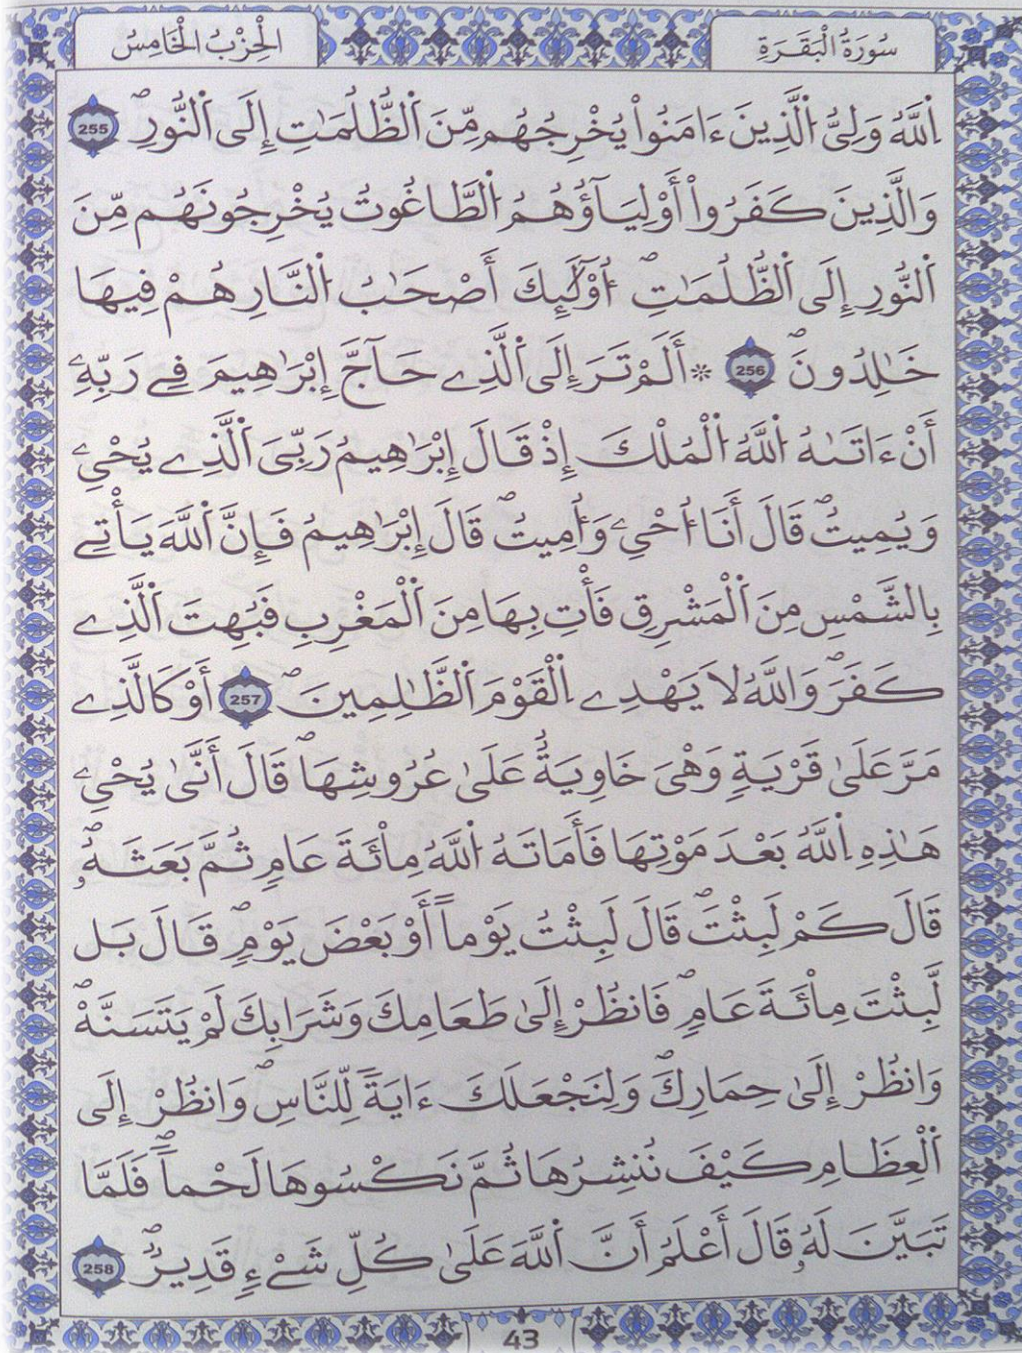 سُورَةُ الْبَقَرَةِ
الْحِزْبُ الْخَامِسُ
اِ۬للَّهُ وَلِيُّ اُ۬لَّذِينَ ءَامَنُواْ يُخْرِجُهُم مِّنَ اَ۬لظُّلُمَٰتِ إِلَى اَ۬لنُّورِۖ 255
وَالَّذِينَ كَفَرُواْ أَوْلِيَآؤُهُمُ اُ۬لطَّٰغُوتُ يُخْرِجُونَهُم مِّنَ
اَ۬لنُّورِ إِلَى اَ۬لظُّلُمَٰتِۖ أُوْلَٰٓئِكَ أَصْحَٰبُ اُ۬لنّ۪ارِ هُمْ فِيهَا
خَٰلِدُونَۖ 256 ۞ أَلَمْ تَرَ إِلَى اَ۬لَّذِے حَآجَّ إِبْرَٰهِيمَ فِے رَبِّهِۦٓ
أَنْ ءَات۪يٰهُ اُ۬للَّهُ اُ۬لْمُلْكَ إِذْ قَالَ إِبْرَٰهِيمُ رَبِّيَ اَ۬لَّذِے يُحْيِۦ
وَيُمِيتُۖ قَالَ أَنَا أُحْيِۦ وَأُمِيتُۖ قَالَ إِبْرَٰهِيمُ فَإِنَّ اَ۬للَّهَ يَأْتِے
بِالشَّمْسِ مِنَ اَ۬لْمَشْرِقِ فَأْتِ بِهَا مِنَ اَ۬لْمَغْرِبِ فَبُهِتَ اَ۬لَّذِے
كَفَرَۖ وَاللَّهُ لَا يَهْدِے اِ۬لْقَوْمَ اَ۬لظَّٰلِمِينَۖ 257 أَوْ كَالَّذِے
مَرَّ عَلَىٰ قَرْيَةٍ وَهْيَ خَاوِيَةٌ عَلَىٰ عُرُوشِهَاۖ قَالَ أَنّ۪يٰ يُحْيِۦ
هَٰذِهِ اِ۬للَّهُ بَعْدَ مَوْتِهَا فَأَمَاتَهُ اُ۬للَّهُ مِاْئَةَ عَامٍ ثُمَّ بَعَثَهُۥۖ
قَالَ كَمْ لَبِثْتَۖ قَالَ لَبِثْتُ يَوْماً أَوْ بَعْضَ يَوْمٍۖ قَالَ بَل
لَّبِثْتَ مِاْئَةَ عَامٍۖ فَانظُرْ إِلَىٰ طَعَامِكَ وَشَرَابِكَ لَمْ يَتَسَنَّهْۖ
وَانظُرْ إِلَىٰ حِمَارِكَۖ وَلِنَجْعَلَكَ ءَايَةً لِّلنَّاسِۖ وَانظُرْ إِلَى
اَ۬لْعِظَامِ كَيْفَ نُنشِرُهَا ثُمَّ نَكْسُوهَا لَحْماًۖ فَلَمَّا
تَبَيَّنَ لَهُۥ قَالَ أَعْلَمُ أَنَّ اَ۬للَّهَ عَلَىٰ كُلِّ شَےْءٍ قَدِيرٌۖ 258
43